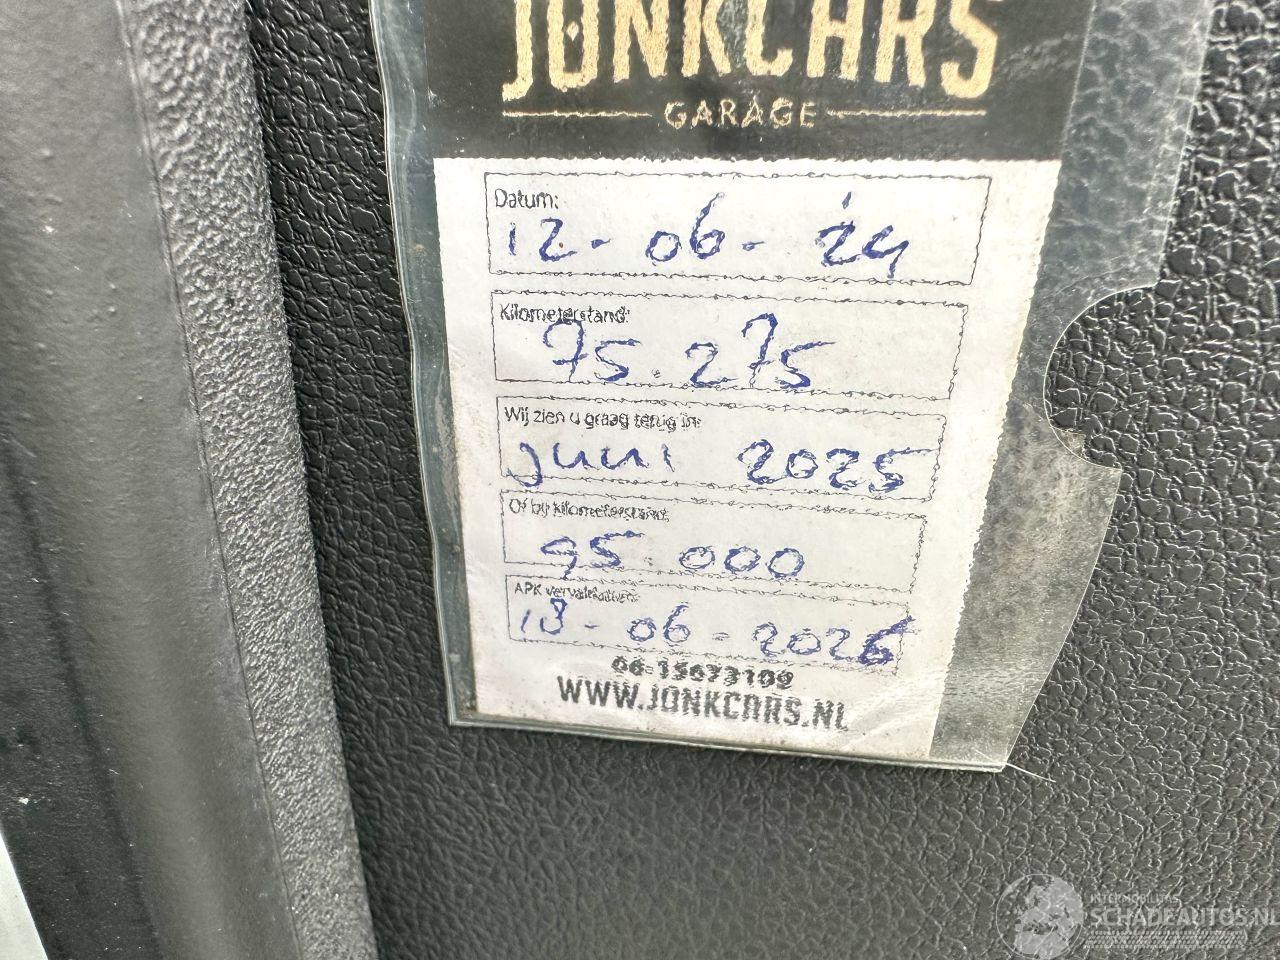 JONKCARS
GARAGE
Datum:
12-06-'24
Kilometerstand:
75.275
Wij zien u graag terug in:
juni 2025
Of bij kilometerstand:
95.000
APK vervaldatum:
18-06-2026
06-15673109
WWW.JONKCARS.NL
INTERMOBILITAS
SCHADEAUTOS.NL